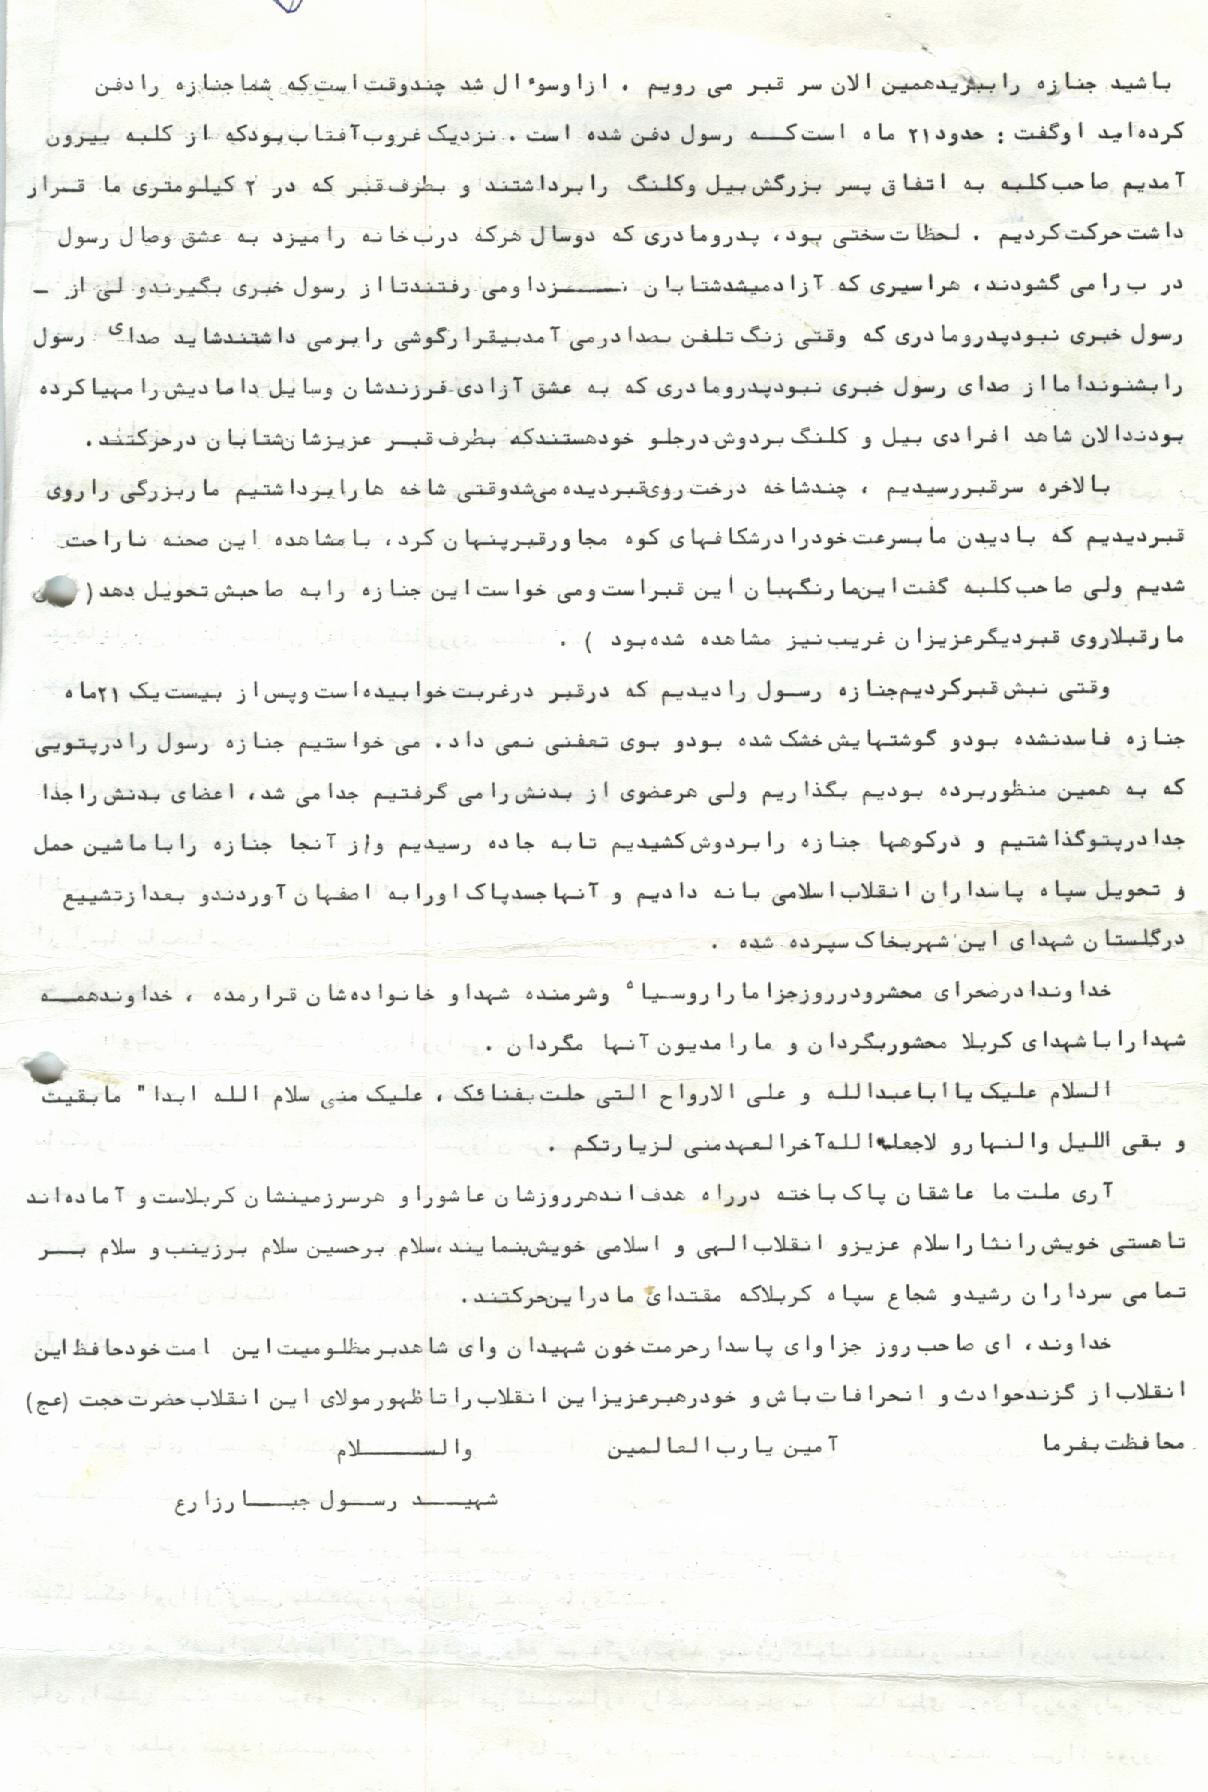 باشید جنازه راببرید همین الان سر قبر می رویم . ازاوسوءال شد چندوقت است که شما جنازه رادفن
کرده اید اوگفت : حدود ۲۱ ماه است کــه رسول دفن شده است . نزدیک غروب آفتاب بودکه از کلبه بیرون
آمدیم صاحب کلبه به اتفاق پسر بزرگش بیل وکلنگ رابرداشتند و بطرف قبر که در ۲ کیلومتری ما قــرار
داشت حرکت کردیم . لحظات سختی بود، پدرومادری که دوسال هرکه درب خانه رامیزد به عشق وصال رسول
در ب رامی گشودند، هراسیری که آزادمیشدشتابان نــــزداومی رفتندتااز رسول خبری بگیرندو لی از ــ
رسول خبری نبودپدرومادری که وقتی زنگ تلفن بصدادرمی آمدبیقرارگوشی رابرمی داشتندشاید صدای رسول
رابشنونداماا‌ز صدای رسول خبری نبودپدرومادری که به عشق آزادی فرزندشان وسایل دامادیش رامهیاکرده
بودندالان شاهد افرادی بیل و کلنگ بردوش درجلو خودهستندکه بطرف قبــر عزیزشان شتابان درحرکتند.
بالاخره سرقبررسیدیم ، چندشاخه درخت روی قبردیده می شدوقتی شاخه هارابرداشتیم ماربزرگی راروی
قبردیدیم که بادیدن مابسرعت خودرادرشکافهای کوه مجاورقبرپنهان کرد، بامشاهده این صحنه ناراحت
شدیم ولی صاحب کلبه گفت این مارنگهبان این قبراست ومی خواست این جنازه رابه صاحبش تحویل دهد (
مارقبلاروی قبردیگرعزیزان غریب نیز مشاهده شده بود ) .
وقتی نبش قبرکردیم جنازه رسـول رادیدیم که درقبر درغربت خوابیده است وپس از بیست یک ۲۱ماه
جنازه فاسدنشده بودو گوشتهایش خشک شده بودو بوی تعفنی نمی داد. می خواستیم جنازه رسول رادرپتویی
که به همین منظوربرده بودیم بگذاریم ولی هرعضوی از بدنش رامی گرفتیم جدامی شد، اعضای بدنش راجدا
جدادرپتوگذاشتیم و درکوهها جنازه رابردوش کشیدیم تابه جاده رسیدیم واز آنجا جنازه راباماشین حمل
و تحویل سپاه پاسداران انقلاب اسلامی بانه دادیم و آنهاجسدپاک اورابه اصفهان آوردندو بعدازتشییع
درگلستان شهدای این شهربخاک سپرده شده .
خداوندادرصحرای محشرودرروزجزاماراروسیاه وشرمنده شهداو خانواده شان قرارمده ، خداوندهمــه
شهداراباشهدای کربلا محشوربگردان و مارامدیون آنها مگردان .
السلام علیک یااباعبدالله و علی الارواح التی حلت بفنائک ، علیک منی سلام الله ابدا" مابقیت
و بقی اللیل والنهارو لاجعله الله آخرالعهدمنی لزیارتکم .
آری ملت ما عاشقان پاک باخته درراه هدف اندهرروزشان عاشوراو هرسرزمینشان کربلاست و آماده اند
تاهستی خویش رانثاراسلام عزیزو انقلاب الهی و اسلامی خویش بنمایند ،سلام برحسین سلام برزینب و سلام بــر
تمامی سرداران رشیدو شجاع سپاه کربلاکه مقتدای مادراین حرکتند.
خداوند، ای صاحب روز جزاوای پاسدارحرمت خون شهیدان وای شاهدبرمظلومیت این امت خودحافظ این
انقلاب از گزندحوادث و انحرافات باش و خودرهبرعزیزاین انقلاب راتاظهورمولای این انقلاب حضرت حجت (عج)
محافظت بفرما آمین یارب العالمین والســــلام
شهیــد رســول جبــارزارع